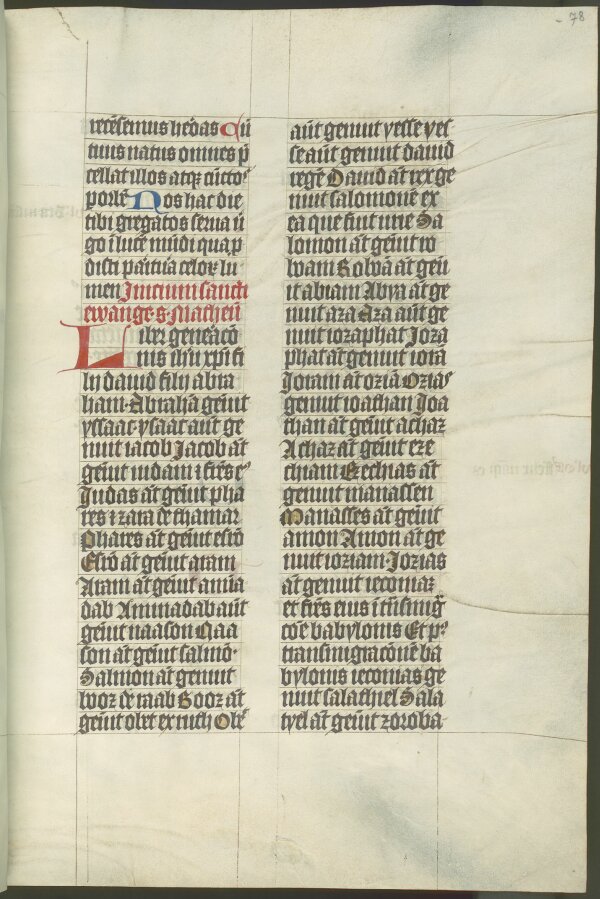 78
recensemus hebas Cu
tuus natus omnes p
cellat illos atqꝫ cūcto
porlē Nos hac die
tibi gregatos serua ū
go ī lucē mūdi qua p
disti paītua celoꝝ lu
men Inicium sancti
ewange s Matheū
Liber gen̄eacō
nis ihū xpī fi
lij dauid filij abra
ham Abrahā geūit
yssaac ysaac aūt ge
nuit iacob Jacob āt
geūit iudam ⁊ frēs eꝰ
Judas āt geūit pha
res ⁊ zara de thamar
Phares āt geūit esrō
Esrō āt geūit aram
Aram āt geūit amīa
dab Aminadab aūt
geūit naason Naa
son āt geūit salmō
Salmon āt genuit
booz de raab Booz āt
geūit obet ex ruth Obꝫ
aūt genuit yesse yes
se aūt genuit dauid
regē Dauid āt rex ge
nuit salomonē ex
ea que fuit urie Sa
lomon āt geūit ro
boam Roboā āt geū
it abiam Abya āt ge
nuit aza Aza aūt ge
nuit iozaphat Joza
phat āt genuit iorā
Joram āt oziā Oziaꝰ
genuit ioathan Joa
than āt geūit achaz
Achaz āt geūit eze
chiam Ezechias āt
genuit manassen
Manasses āt geūit
amon Amon āt ge
nuit ioziam Jozias
āt genuit ieconiaꝫ
et frēs eius ī trāsmig
cōe babylonis Et pꝰ
transmigracōnē ba
bylonis ieconias ge
nuit salathiel Sala
tyel āt geūit zoroba